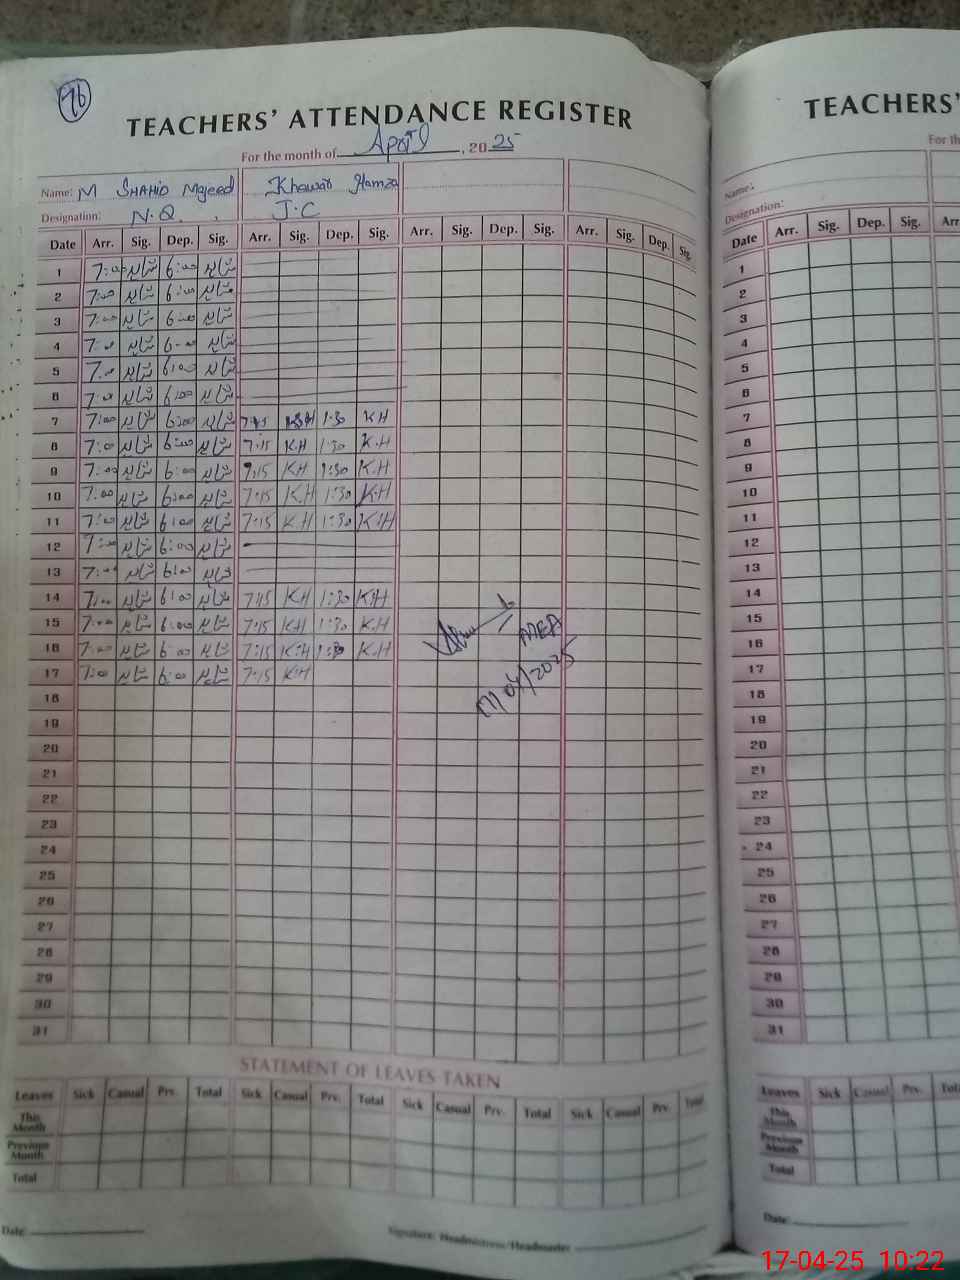 96
TEACHERS' ATTENDANCE REGISTER
For the month of April, 2025
Name: M SHAHID Majeed Khawar Hamza
Designation: N.Q. J.C
Date Arr. Sig. Dep. Sig. Arr. Sig. Dep. Sig. Arr. Sig. Dep. Sig. Arr. Sig. Dep. Sig.
1 7:00 شاہد 6:00 شاہد
2 7:00 شاہد 6:00 شاہد
3 7:00 شاہد 6:00 شاہد
4 7:00 شاہد 6:00 شاہد
5 7:00 شاہد 6:00 شاہد
6 7:00 شاہد 6:00 شاہد
7 7:00 شاہد 6:00 شاہد 7:15 K.H 1:30 K H
8 7:00 شاہد 6:00 شاہد 7:15 K.H 1:30 K.H
9 7:00 شاہد 6:00 شاہد 7:15 K.H 1:30 K.H
10 7:00 شاہد 6:00 شاہد 7:15 K.H 1:30 K.H
11 7:00 شاہد 6:00 شاہد 7:15 K.H 1:30 K.H
12 7:00 شاہد 6:00 شاہد
13 7:00 شاہد 6:00 شاہد
14 7:00 شاہد 6:00 شاہد 7:15 K.H 1:30 K.H
15 7:00 شاہد 6:00 شاہد 7:15 K.H 1:30 K.H
16 7:00 شاہد 6:00 شاہد 7:15 K.H 1:30 K.H
17 7:00 شاہد 6:00 شاہد 7:15 K.H
MEA
17/04/2025
18
19
20
21
22
23
24
25
26
27
28
29
30
31
STATEMENT OF LEAVES TAKEN
Leaves Sick Casual Prv. Total Sick Casual Prv. Total Sick Casual Prv. Total Sick Casual Prv. Total
This Month
Previous Month
Total
Date: Signature: Headmistress/Headmaster
TEACHERS'
For th
Name:
Designation:
Date Arr. Sig. Dep. Sig. Arr
1
2
3
4
5
6
7
8
9
10
11
12
13
14
15
16
17
18
19
20
21
22
23
24
25
26
27
28
29
30
31
Leaves Sick Casual Prv. Tota
This Month
Previous Month
Total
Date:
17-04-25 10:22